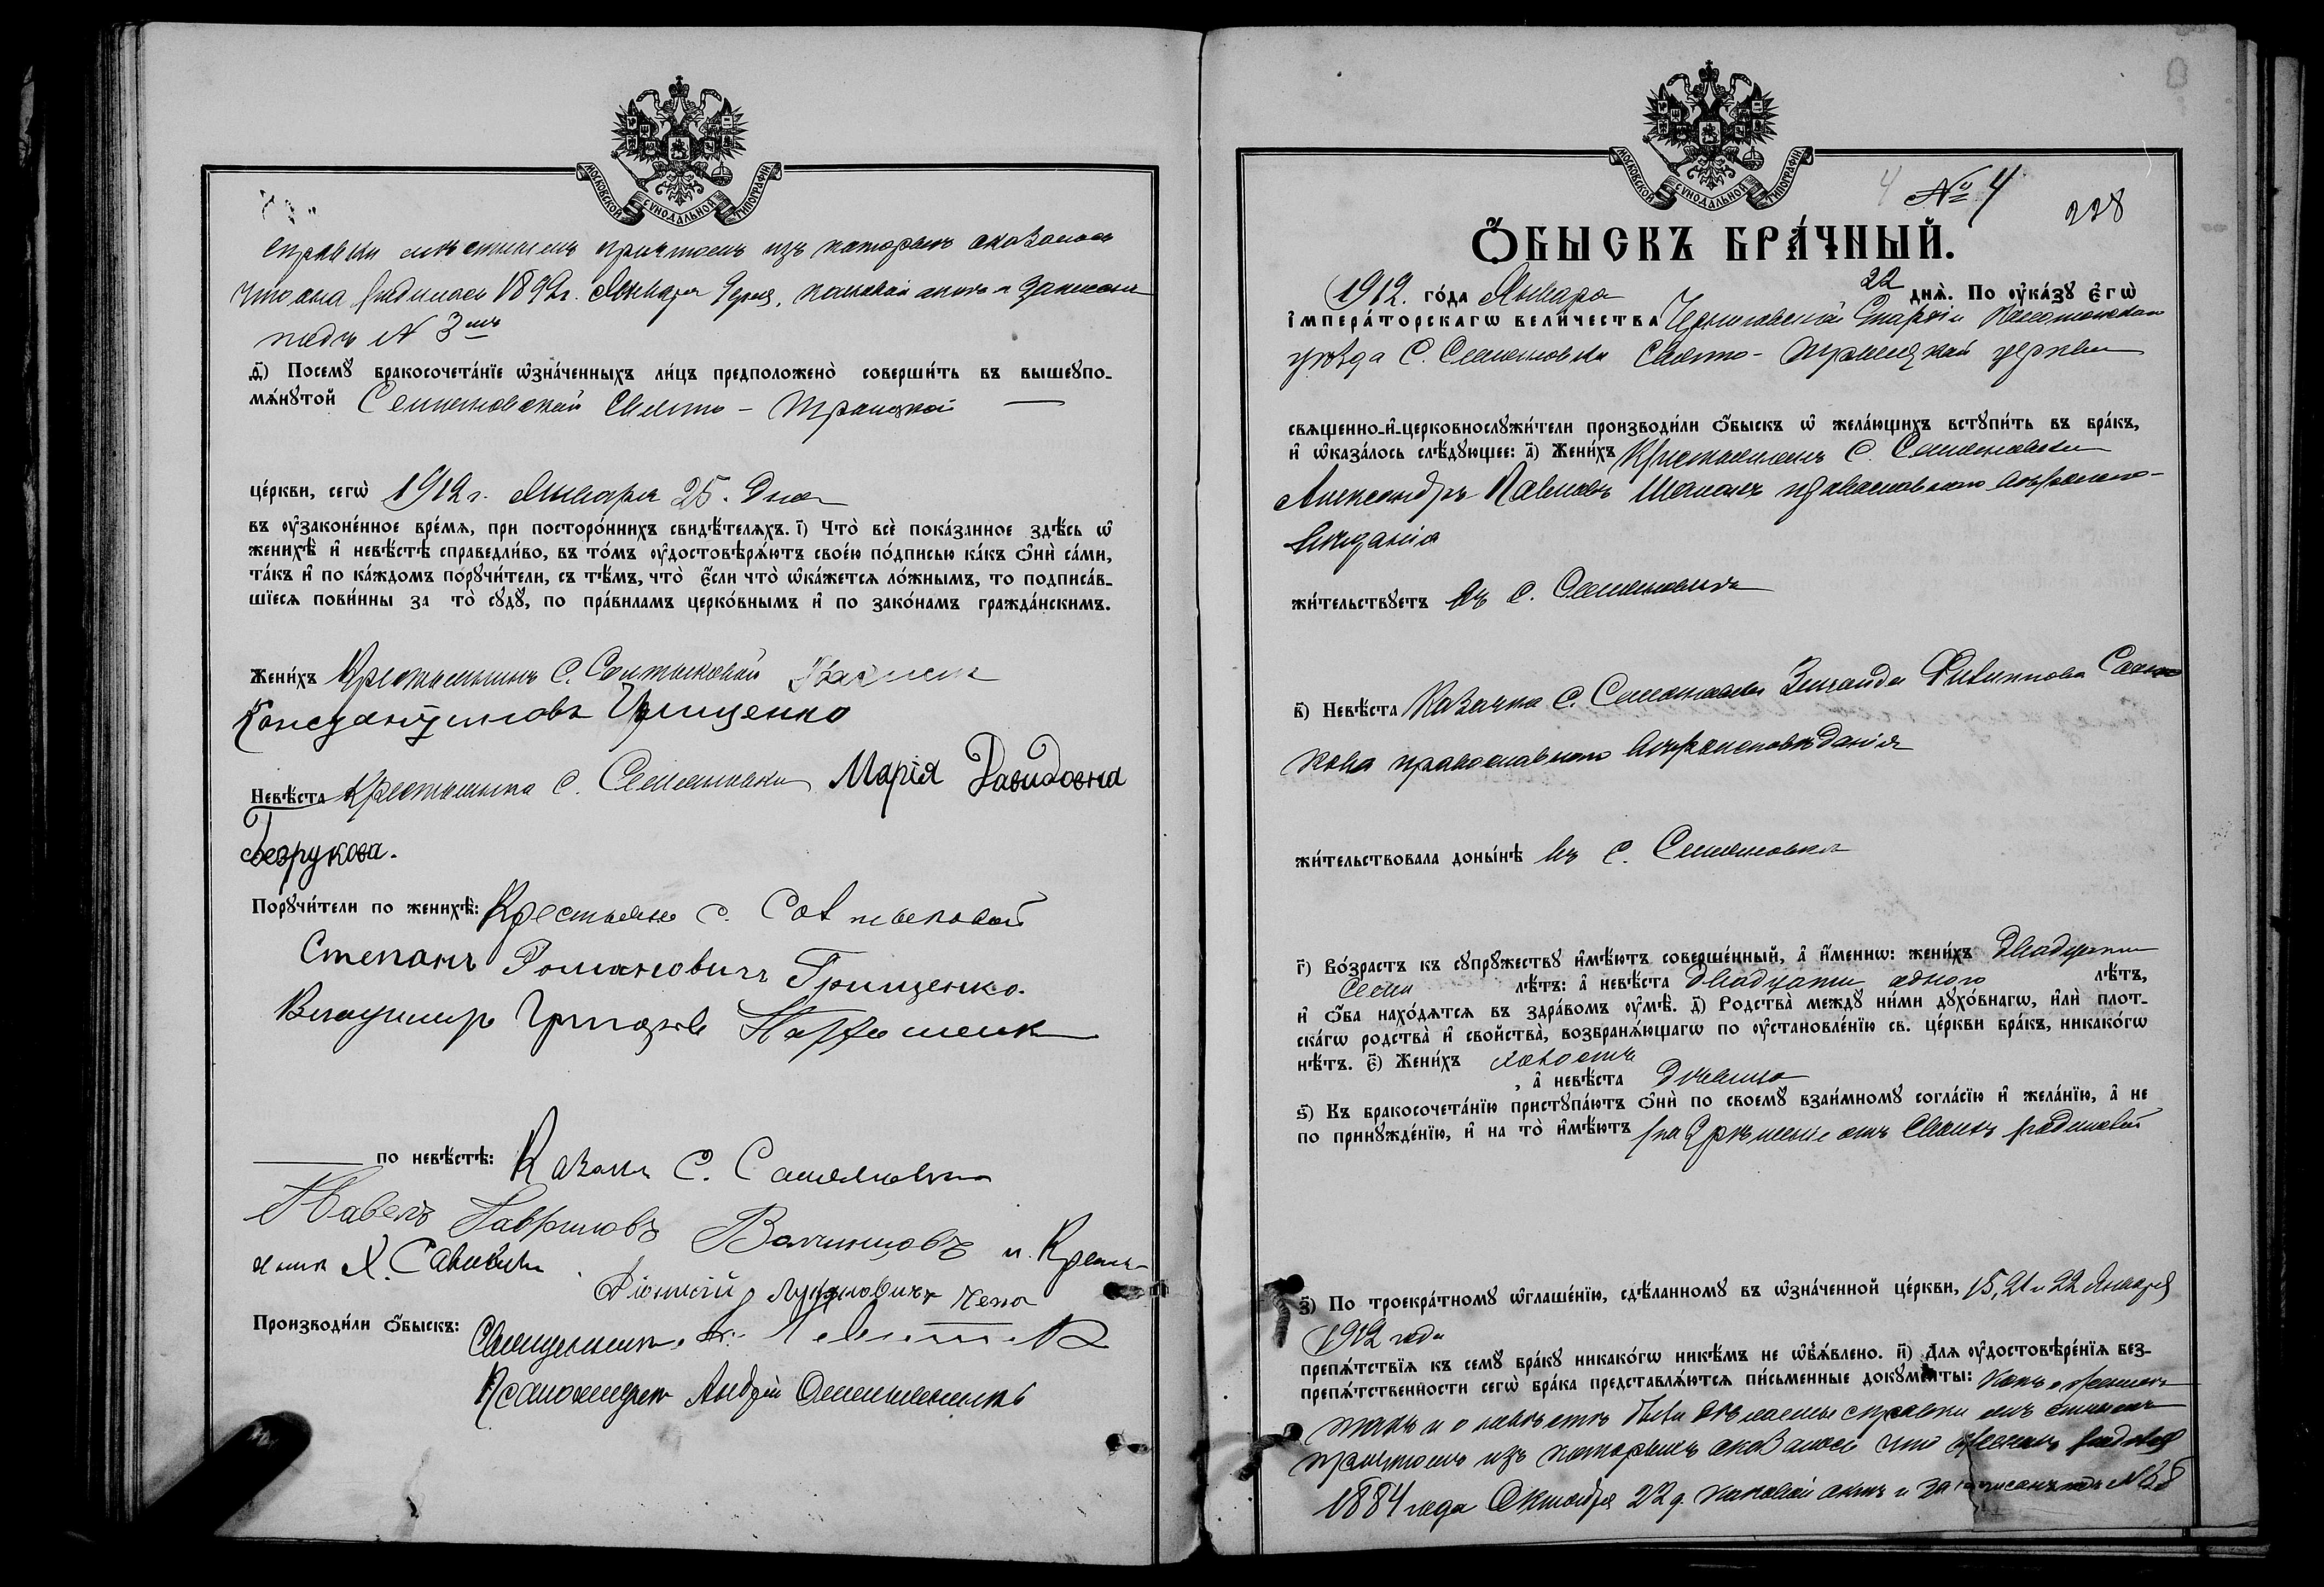 МОСКОВСКОЙ СѴНОДАЛЬНОЙ ТИПОГРАФІИ
справки мѣстнымъ причтомъ изъ которыхъ оказалось
что она родилась 1892 г. Января 9 дня, каковой актъ и записанъ
подъ № 3мъ
ѳ҃) Посемꙋ̀ бракосочета́нїе ѡ҆зна́ченныхъ ли́цъ предположено̀ соверши́ть въ вышеꙋпо-
мѧ́нꙋтой Семеновской Свято-Троицкой
це́ркви, сегѡ̀ 1912 г. Января 25. дня
въ ᲂу҆законе́нное вре́мѧ, при посторо́ннихъ свидѣ́телѧхъ. і҃) Что̀ всѐ пока́занное здѣ́сь ѡ҆
женихѣ̀ и҆ невѣ́стѣ справедли́во, въ то́мъ ᲂу҆достовѣрѧ́ютъ свое́ю по́дписью ка́къ ѻ҆нѝ са́ми,
та́къ и҆ по ка́ждомъ порꙋчи́тели, съ тѣ́мъ, что̀ є҆́сли что̀ ѡ҆ка́жетсѧ ло́жнымъ, то подписа́в-
шїесѧ пови́нны за то̀ сꙋдꙋ̀, по пра́виламъ церко́внымъ и҆ по зако́намъ гражда́нскимъ.
Жени́хъ Крестьянинъ С. Солтыковой
Константиновъ Грищенко
Невѣ́ста Крестьянка С. Семеновки Марія Давидовна
Безрукова.
Порꙋчи́тели по женихѣ̀: Крестьяне С. Солтыковой
Степанъ Романовичъ Грищенко.
Владимир Григоров
по невѣ́стѣ: Казакъ С. Семеновки
Павелъ Гавриловъ и Кресть-
янин Х.
Діонисій
Производи́ли ѻ҆́быскъ: Священникъ
Псаломщикъ Андрей
МОСКОВСКОЙ СѴНОДАЛЬНОЙ ТИПОГРАФІИ
4 № 4
228
Ѻ҆́БЫСКЪ БРА́ЧНЫЙ.
1912. го́да Января 22 днѧ̀. По ᲂу҆ка́зꙋ є҆гѡ̀
і҆мпера́торскагѡ вели́чества Черниговской Епархіи Конотопскаго
уѣзда С. Семеновки Свято-Троицкой церкви
свѧщенно-и҆-церковнослꙋжи́тели производи́ли ѻ҆́быскъ ѡ҆ жела́ющихъ встꙋпи́ть въ бра́къ,
и҆ ѡ҆каза́лось слѣ́дꙋющее: а҃) Жени́хъ Крестьянинъ С. Семеновки
Александръ Павловъ православнаго вѣроиспо-
вѣданія
жи́тельствꙋетъ въ С. Семеновкѣ
в҃) Невѣ́ста Казачка С. Семеновки Зинаида Филиппова
кова православнаго вѣроисповѣданія
жи́тельствовала доны́нѣ въ С. Семеновкѣ
г҃) Во́зрастъ къ сꙋпрꙋ́жествꙋ и҆мѣ́ютъ соверше́нный, а҆ и҆́меннѡ: жени́хъ двадцати
семи лѣ́тъ: а҆ невѣ́ста двадцати одного лѣ́тъ,
и҆ ѻ҆́ба нахо́дѧтсѧ въ здра́вомъ ᲂу҆мѣ̀. д҃) Родства̀ междꙋ̀ ни́ми дꙋхо́внагѡ, и҆лѝ плот-
ска́гѡ родства̀ и҆ сво́йства̀, возбранѧ́ющагѡ по ᲂу҆становле́нїю св. це́ркви бра́къ, никако́гѡ
нѣ́тъ. є҃) Жени́хъ холостъ
, а҆ невѣ́ста дѣвица
ѕ҃) Къ бракосочета́нїю пристꙋпа́ютъ ѻ҆нѝ по своемꙋ̀ взаи́мномꙋ согла́сїю и҆ жела́нїю, а҆ не
по принꙋжде́нїю, и҆ на то̀ и҆мѣ́ютъ разрѣшеніе отъ своихъ родителей
з҃) По троекра́тномꙋ ѡ҆глаше́нїю, сдѣ́ланномꙋ въ ѡ҆зна́ченной це́ркви, 15, 21 и 22 Января
1912 года
препѧ́тствїѧ къ семꙋ̀ бра́кꙋ никако́гѡ никѣ́мъ не ѡ҆б̾ѧ́влено. и҃) Длѧ ᲂу҆достовѣре́нїѧ без-
препѧ́тственности сегѡ̀ бра́ка представлѧ́ютсѧ пи́сьменные докꙋме́нты: Какъ о женихѣ
такъ и о невѣстѣ были сдѣланы справки мѣстнымъ
причтомъ изъ которыхъ оказалось что женихъ родился
1884 года Октября 22 д. каковой актъ и записанъ подъ № 38